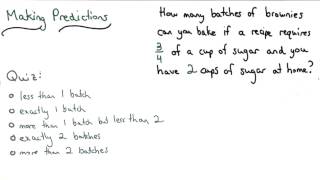 Making Predictions
How many batches of brownies
can you bake if a recipe requires
3/4 of a cup of sugar and you
have 2 cups of sugar at home?
Quiz:
○ less than 1 batch
○ exactly 1 batch
○ more than 1 batch but less than 2
○ exactly 2 batches
○ more than 2 batches